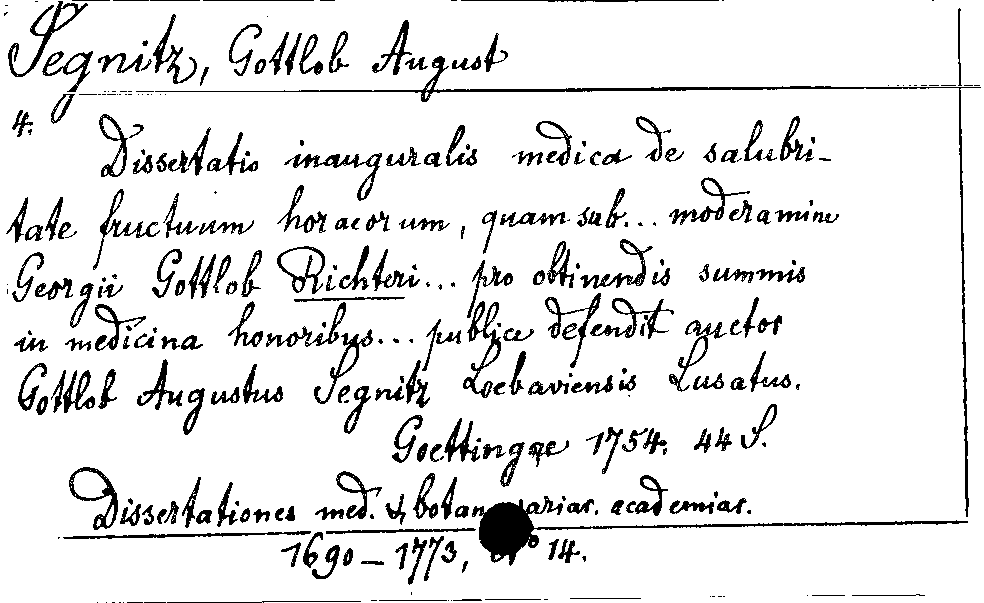 Segnitz, Gottlob August
4.
Dissertatio inauguralis medica de salubri-
tate fructuum horaeorum, quam sub... moderamine
Georgii Gottlob Richteri... pro obtinendis summis
in medicina honoribus... publice defendit auctor
Gottlob Augustus Segnitz Loebaviensis Lusatus.
Goettingae 1754. 44 S.
Dissertationes med. & botan. variae. academiae.
1690 – 1773, No 14.